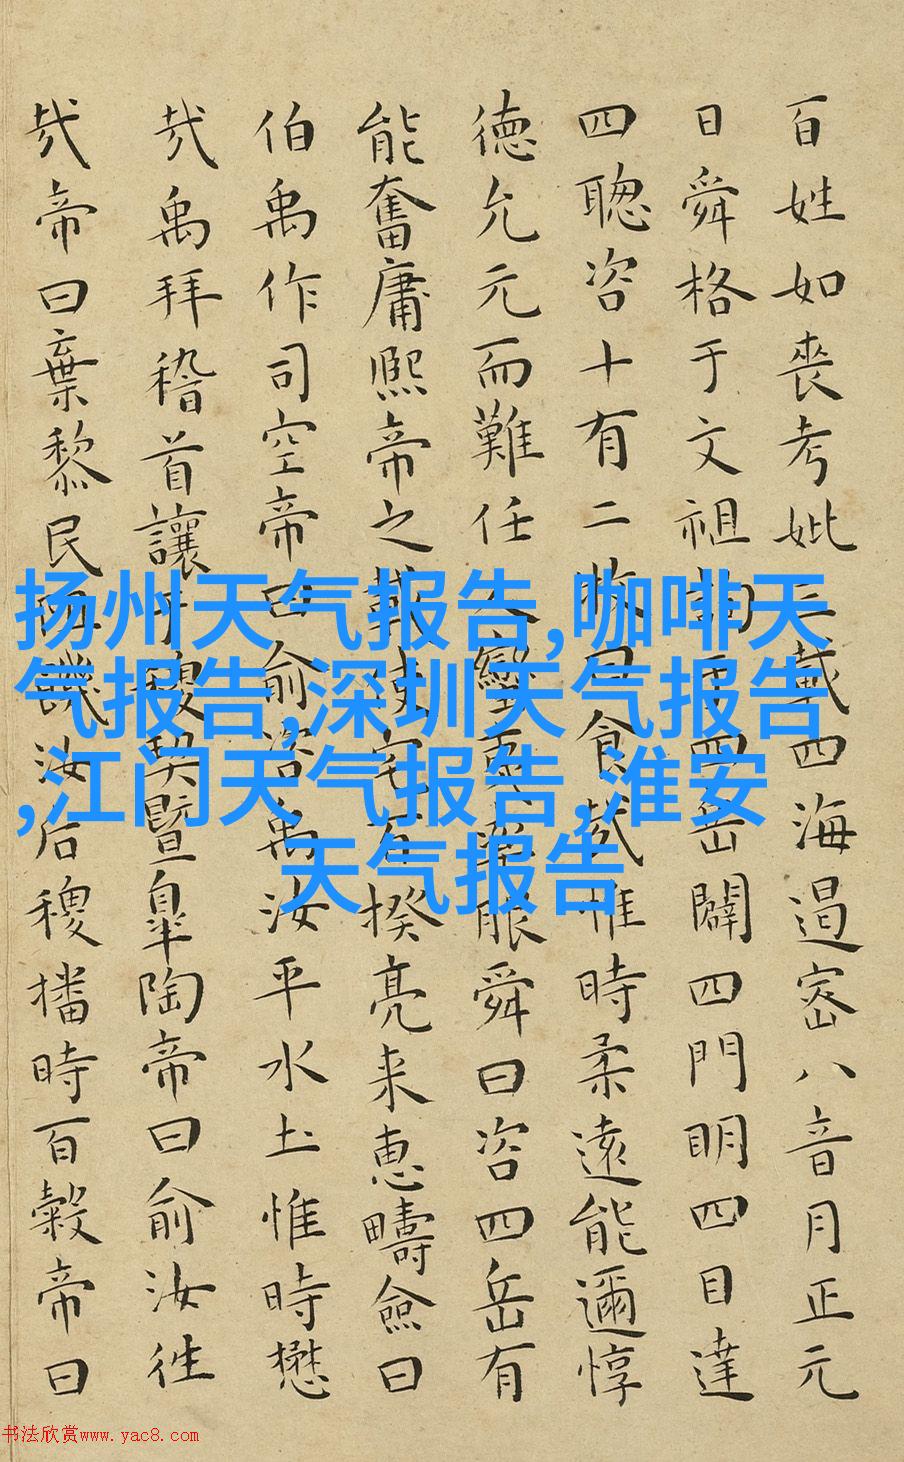 百姓如喪考妣三載四海遏密八音月正元
日舜格于文祖詢于四岳闢四門明四目達
四聰咨十有二牧曰食哉惟時柔遠能邇惇
德允元而難任人蠻夷率服舜曰咨四岳有
能奮庸熙帝之載使宅百揆亮采惠疇僉曰
伯禹作司空帝曰俞咨禹汝平水土惟時懋
哉禹拜稽首讓于稷契暨皐陶帝曰俞汝往
哉帝曰棄黎民阻饑汝后稷播時百穀帝曰
扬州天气报告,咖啡天
气报告,深圳天气报告
,江门天气报告,淮安
天气报告
书法欣赏www.yac8.com